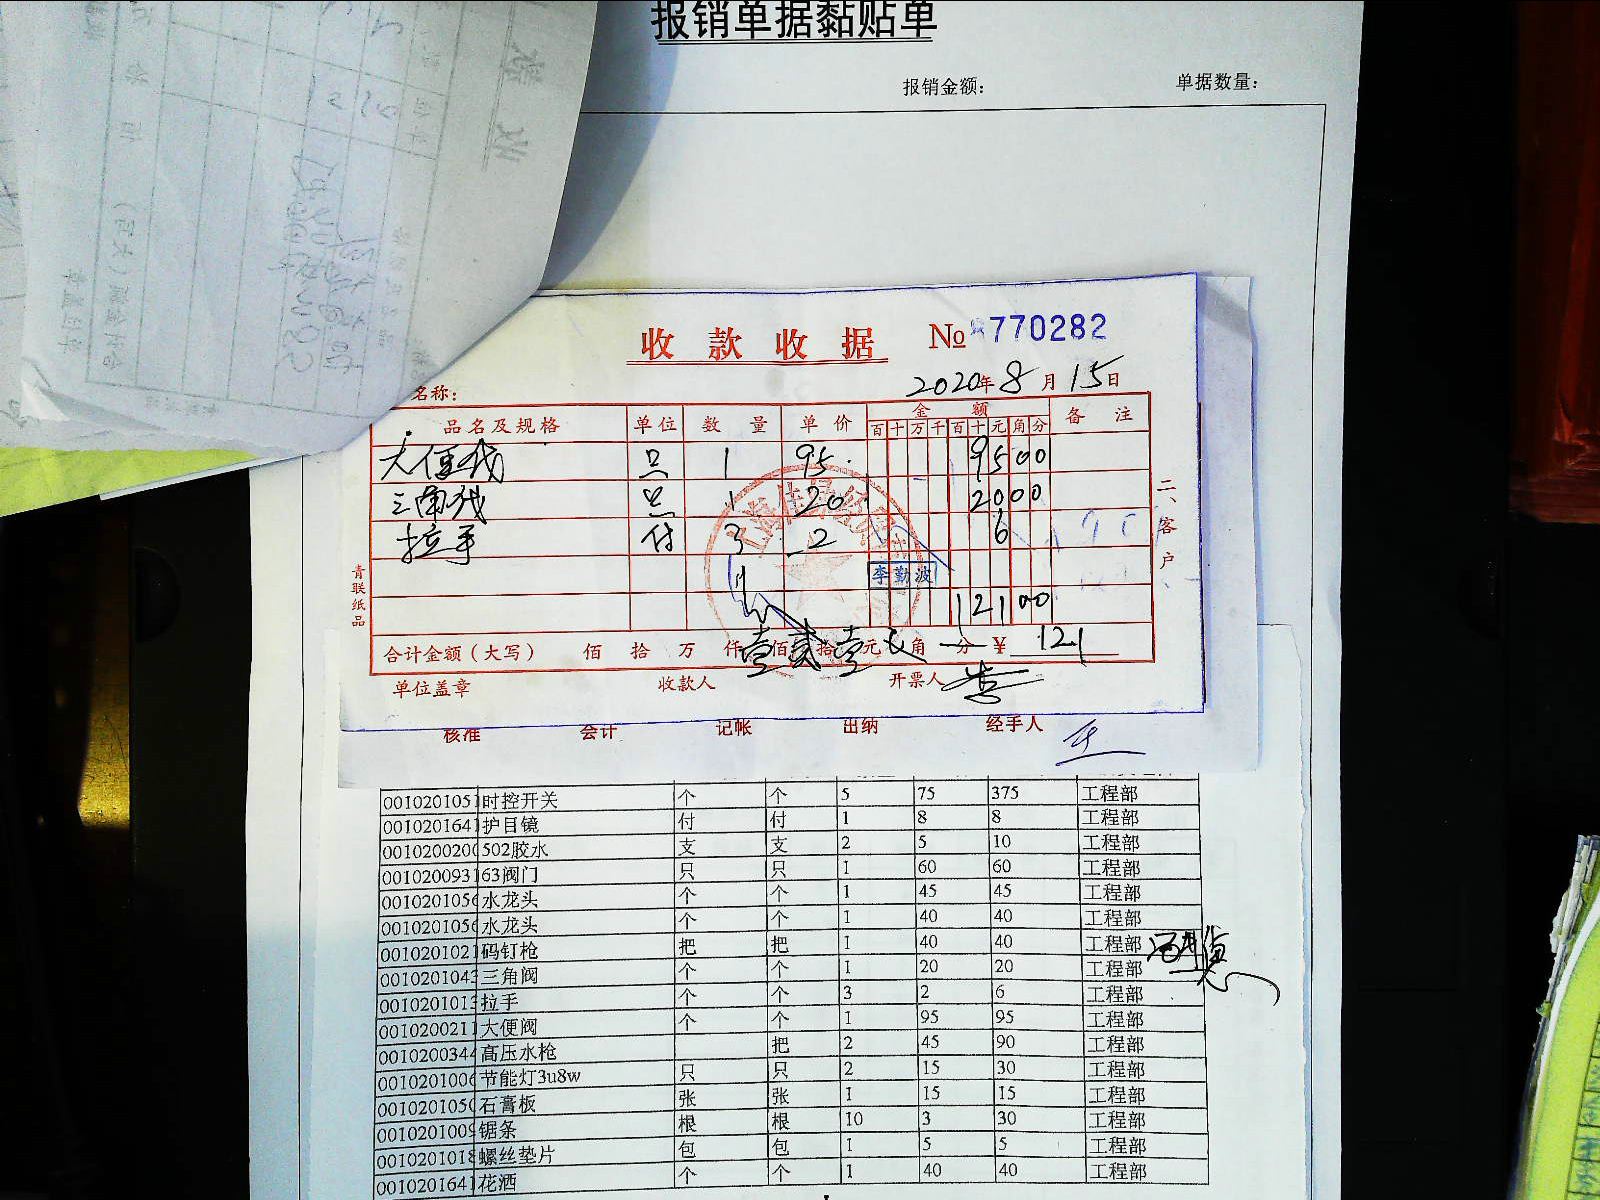 报销单据黏贴单
报销金额： 单据数量：
收款收据 № 770282
2020年8月15日
名称：
品名及规格 单位 数量 单价 金额 备注
百十万千百十元角分
大便阀 只 1 95. 9500
三角阀 只 1 20 2000
拉手 付 3 2 6
李勤波
12100
合计金额（大写） 佰 拾 万 仟 佰壹 拾贰 元壹 角 分 ¥ 121
单位盖章 收款人 开票人
二、客户
青联纸品
核准 会计 记帐 出纳 经手人
0010201051 时控开关 个 个 5 75 375 工程部
0010201641 护目镜 付 付 1 8 8 工程部
001020020 502胶水 支 支 2 5 10 工程部
001020093 63阀门 只 只 1 60 60 工程部
001020105 水龙头 个 个 1 45 45 工程部
001020105 水龙头 个 个 1 40 40 工程部
0010201021 码钉枪 把 把 1 40 40 工程部
001020104 三角阀 个 个 1 20 20 工程部
001020101 拉手 个 个 3 2 6 工程部
0010200211 大便阀 个 个 1 95 95 工程部
001020034 高压水枪 把 2 45 90 工程部
001020100 节能灯3u8w 只 只 2 15 30 工程部
001020105 石膏板 张 张 1 15 15 工程部
001020100 锯条 根 根 10 3 30 工程部
001020101 螺丝垫片 包 包 1 5 5 工程部
0010201641 花洒 个 个 1 40 40 工程部